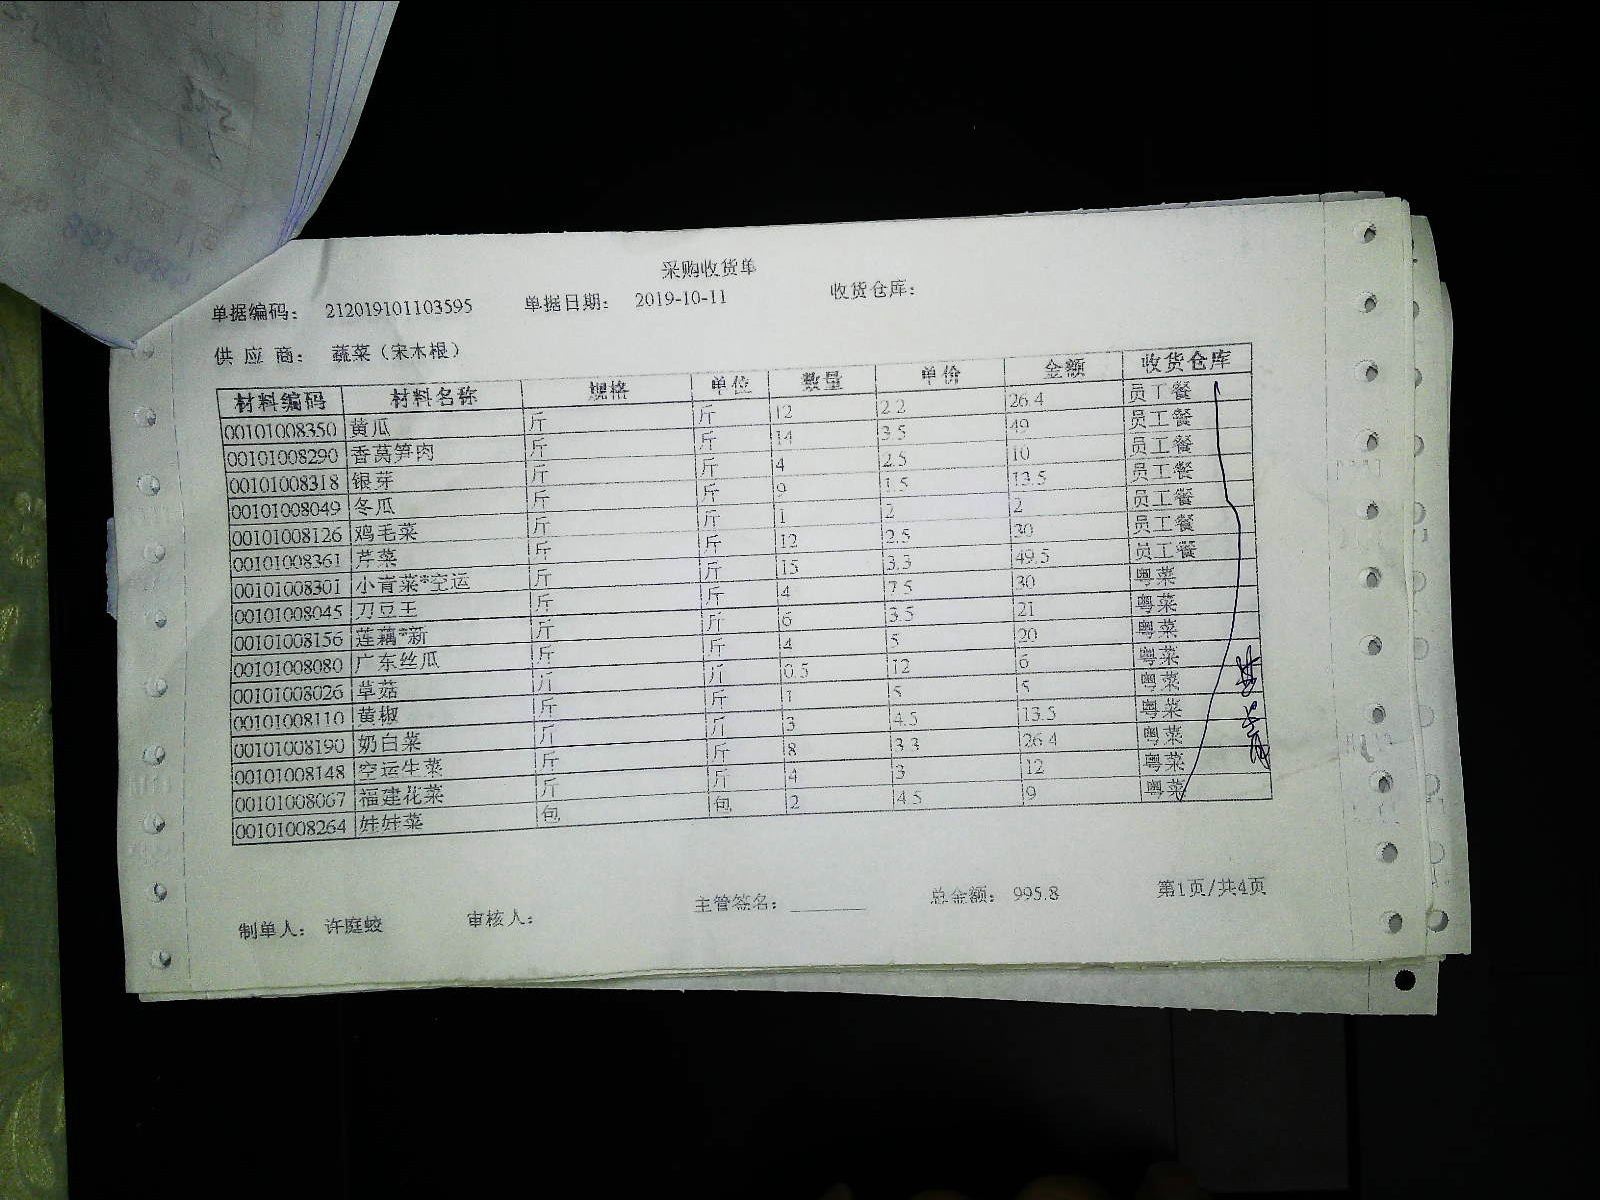 采购收货单
单据编码： 212019101103595 单据日期： 2019-10-11 收货仓库：
供 应 商： 蔬菜（宋木根）
材料编码 材料名称 规格 单位 数量 单价 金额 收货仓库
00101008350 黄瓜 斤 斤 12 2.2 26.4 员工餐
00101008290 香莴笋肉 斤 斤 14 3.5 49 员工餐
00101008318 银芽 斤 斤 4 2.5 10 员工餐
00101008049 冬瓜 斤 斤 9 1.5 13.5 员工餐
00101008126 鸡毛菜 斤 斤 1 2 2 员工餐
00101008361 芹菜 斤 斤 12 2.5 30 员工餐
00101008301 小青菜*空运 斤 斤 15 3.3 49.5 员工餐
00101008045 刀豆王 斤 斤 4 7.5 30 粤菜
00101008156 莲藕*新 斤 斤 6 3.5 21 粤菜
00101008080 广东丝瓜 斤 斤 4 5 20 粤菜
00101008026 草菇 斤 斤 0.5 12 6 粤菜
00101008110 黄椒 斤 斤 1 5 5 粤菜
00101008190 奶白菜 斤 斤 3 4.5 13.5 粤菜
00101008148 空运生菜 斤 斤 8 3.3 26.4 粤菜
00101008067 福建花菜 斤 斤 4 3 12 粤菜
00101008264 娃娃菜 包 包 2 4.5 9 粤菜
制单人： 许庭蛟 审核人： 主管签名： 总金额： 995.8 第1页/共4页